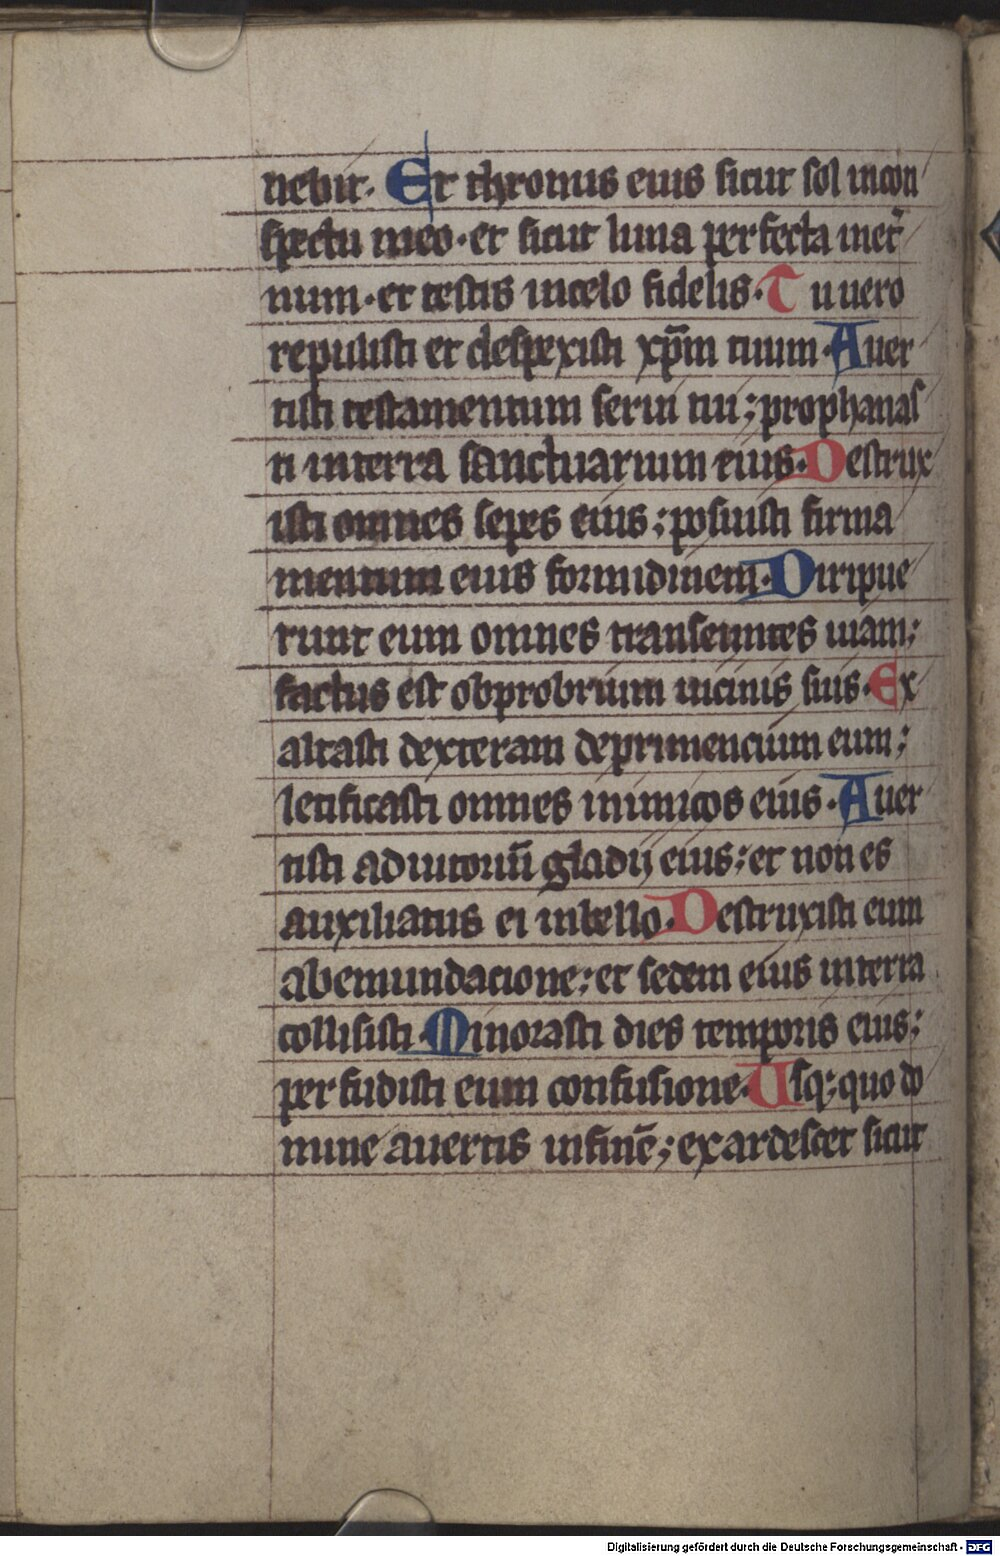 nebit. Et thronus eius sicut sol incon
spectu meo. et sicut luna perfecta inet̾
num. et testis incelo fidelis. Tu uero
repulisti et despexisti xp̄m tuum. Auer
tisti testamentum serui tui; prophanas
ti interra sanctuarium eius. Destrux
isti omnes sepes eius; posuisti firma
mentum eius formidinem. Diripue
runt eum omnes transeuntes uiam;
factus est obprobrium uicinis suis. Ex
altasti dexteram deprimencium eum;
letificasti omnes inimicos eius. Auer
tisti adiutoriū gladij eius; et non es
auxiliatus ei inbello. Destruxisti eum
abemundacione; et sedem eius interra
collisisti. Minorasti dies temporis eius;
perfudisti eum confusione. Usq; quo do
mine auertis infinē; exardescet sicut
Digitalisierung gefördert durch die Deutsche Forschungsgemeinschaft - DFG